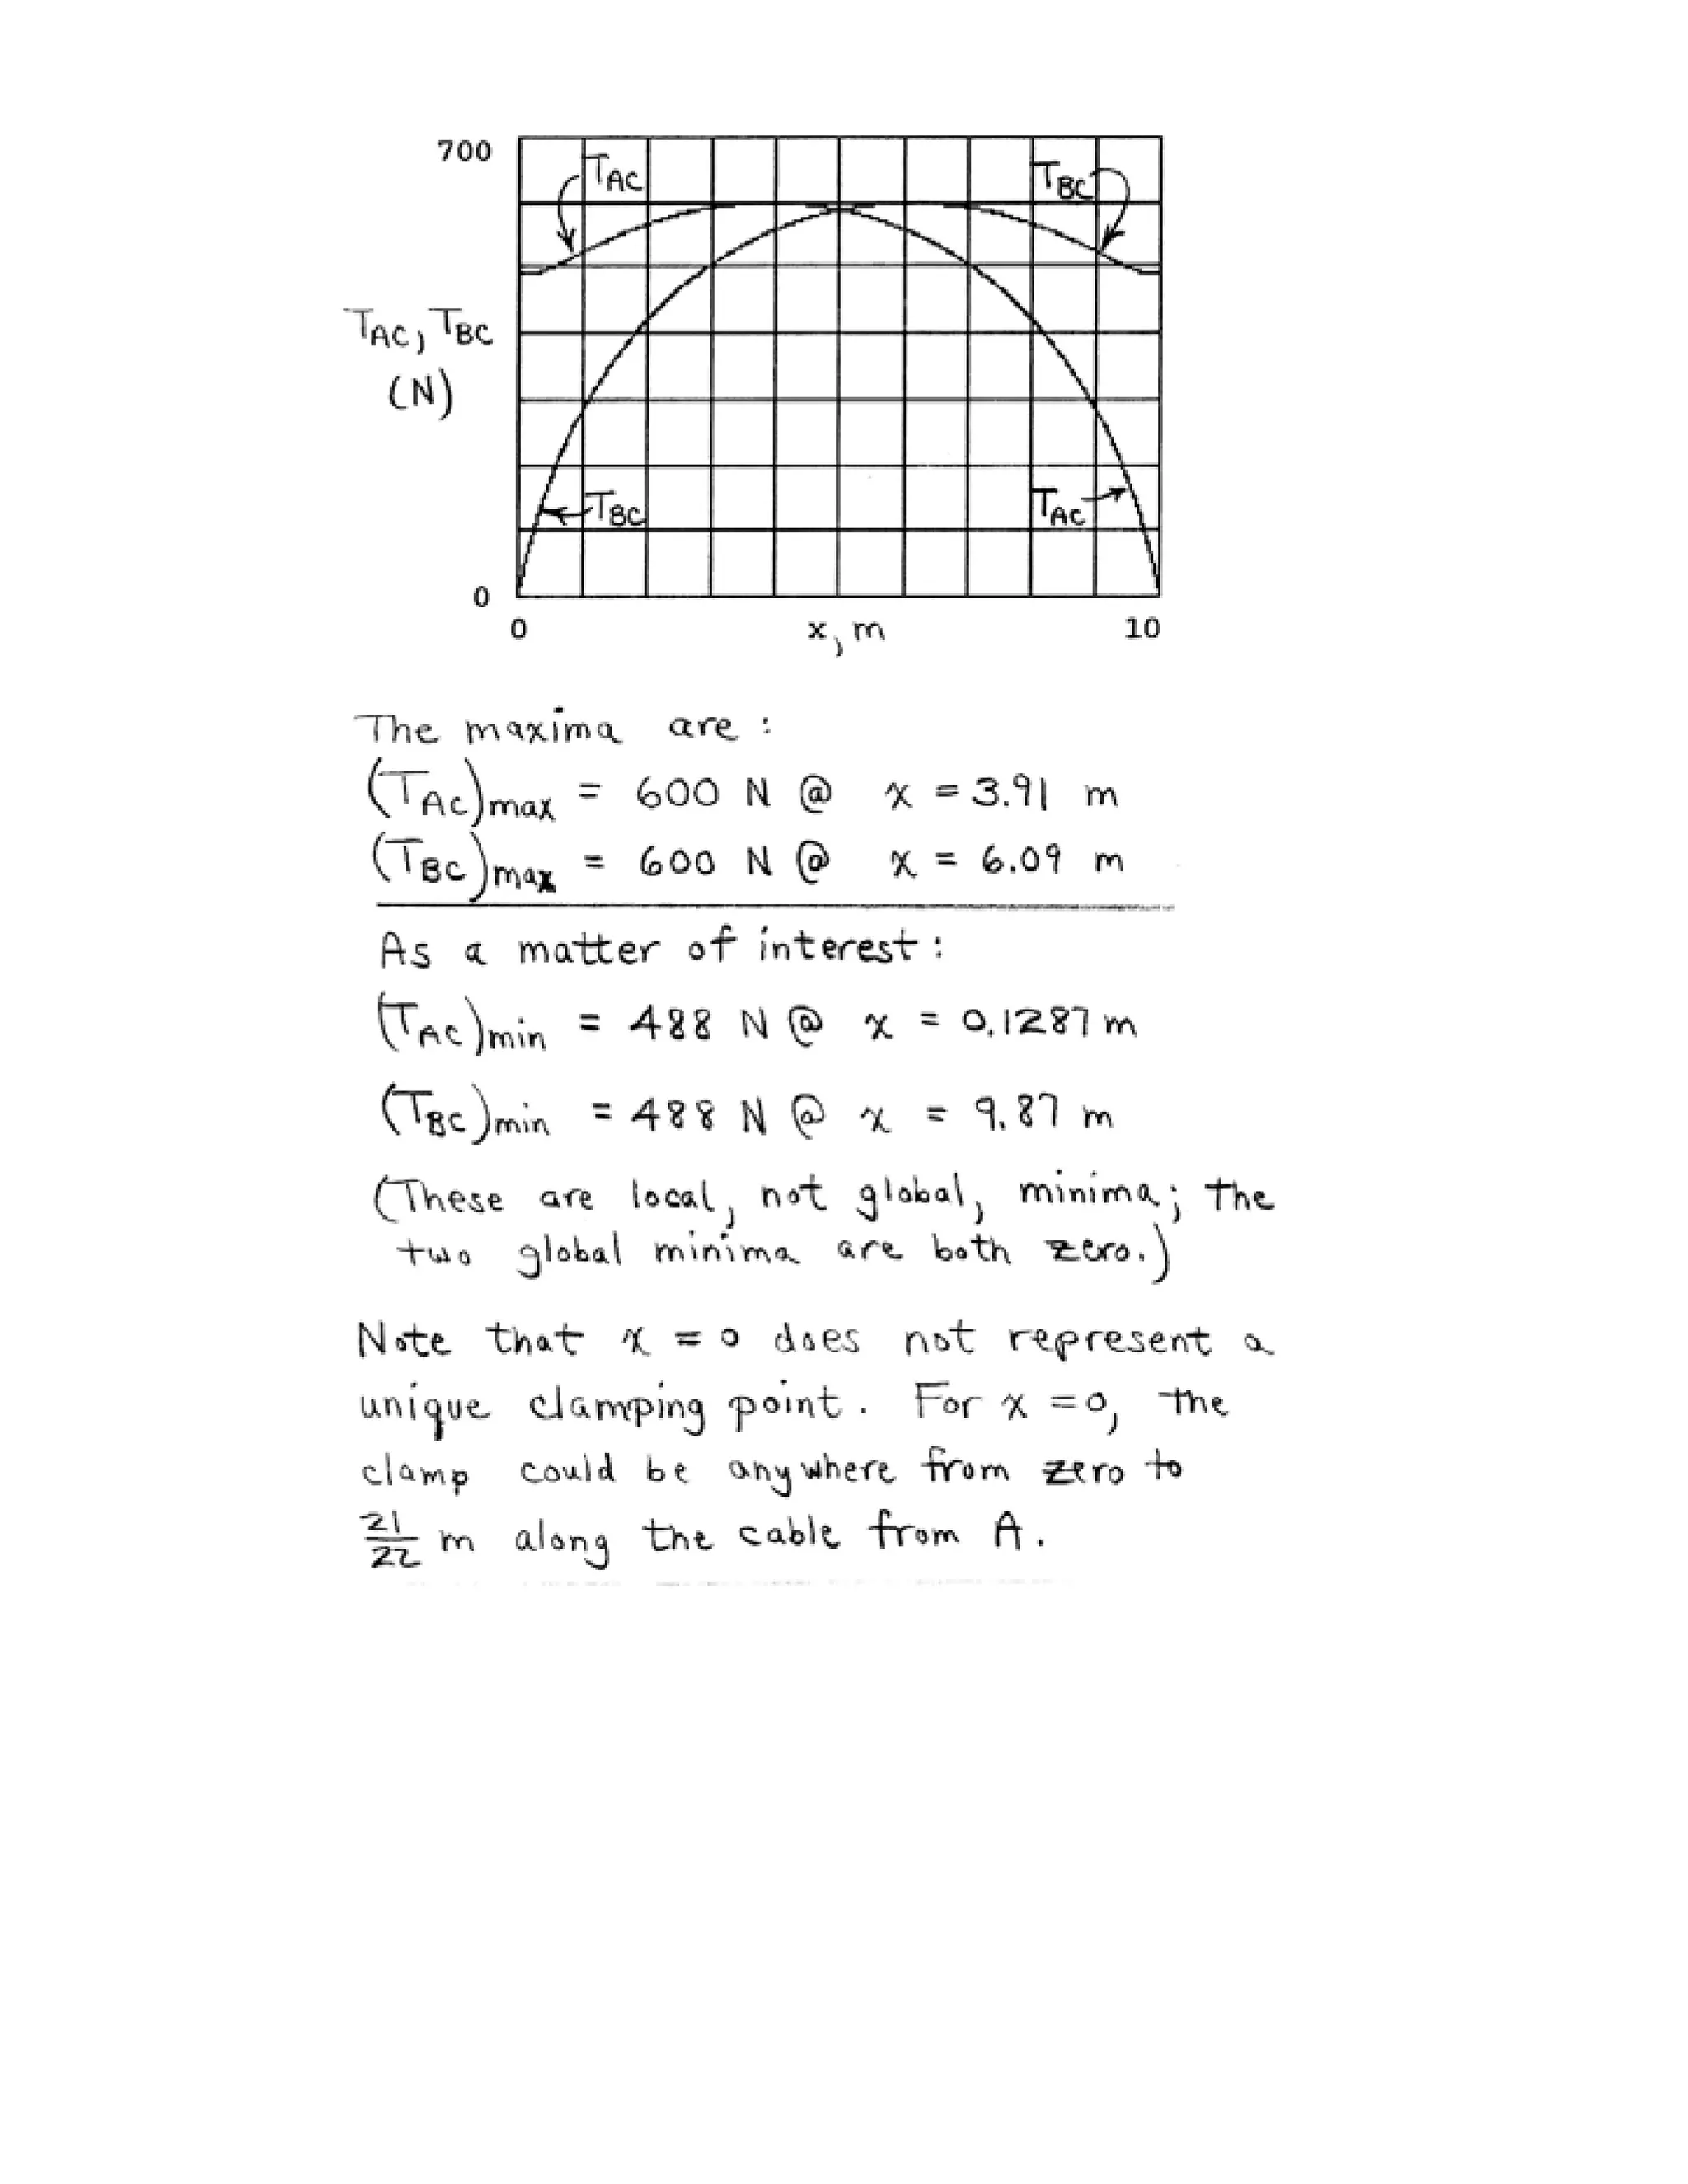 700
T_AC
T_BC
T_AC, T_BC
(N)
T_BC
T_AC
0
0
x, m
10
The maxima are :
(T_AC)max = 600 N @ x = 3.91 m
(T_BC)max = 600 N @ x = 6.09 m
As a matter of interest :
(T_AC)min = 488 N @ x = 0.1287 m
(T_BC)min = 488 N @ x = 9.87 m
(These are local, not global, minima; the
two global minima are both zero.)
Note that x = 0 does not represent a
unique clamping point. For x = 0, the
clamp could be anywhere from zero to
21/22 m along the cable from A.